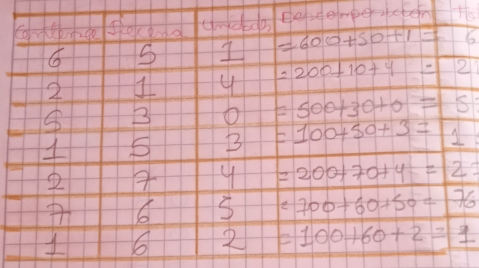 Centena Decena Unidad Descomposición
6 5 1 =600+50+1= 6
2 1 4 =200+10+4 = 2
5 3 0 =500+30+0 = 5
1 5 3 =100+50+3= 1
2 7 4 =200+70+4 = 2
7 6 5 =700+60+50= 76
1 6 2 =100+60+2=1